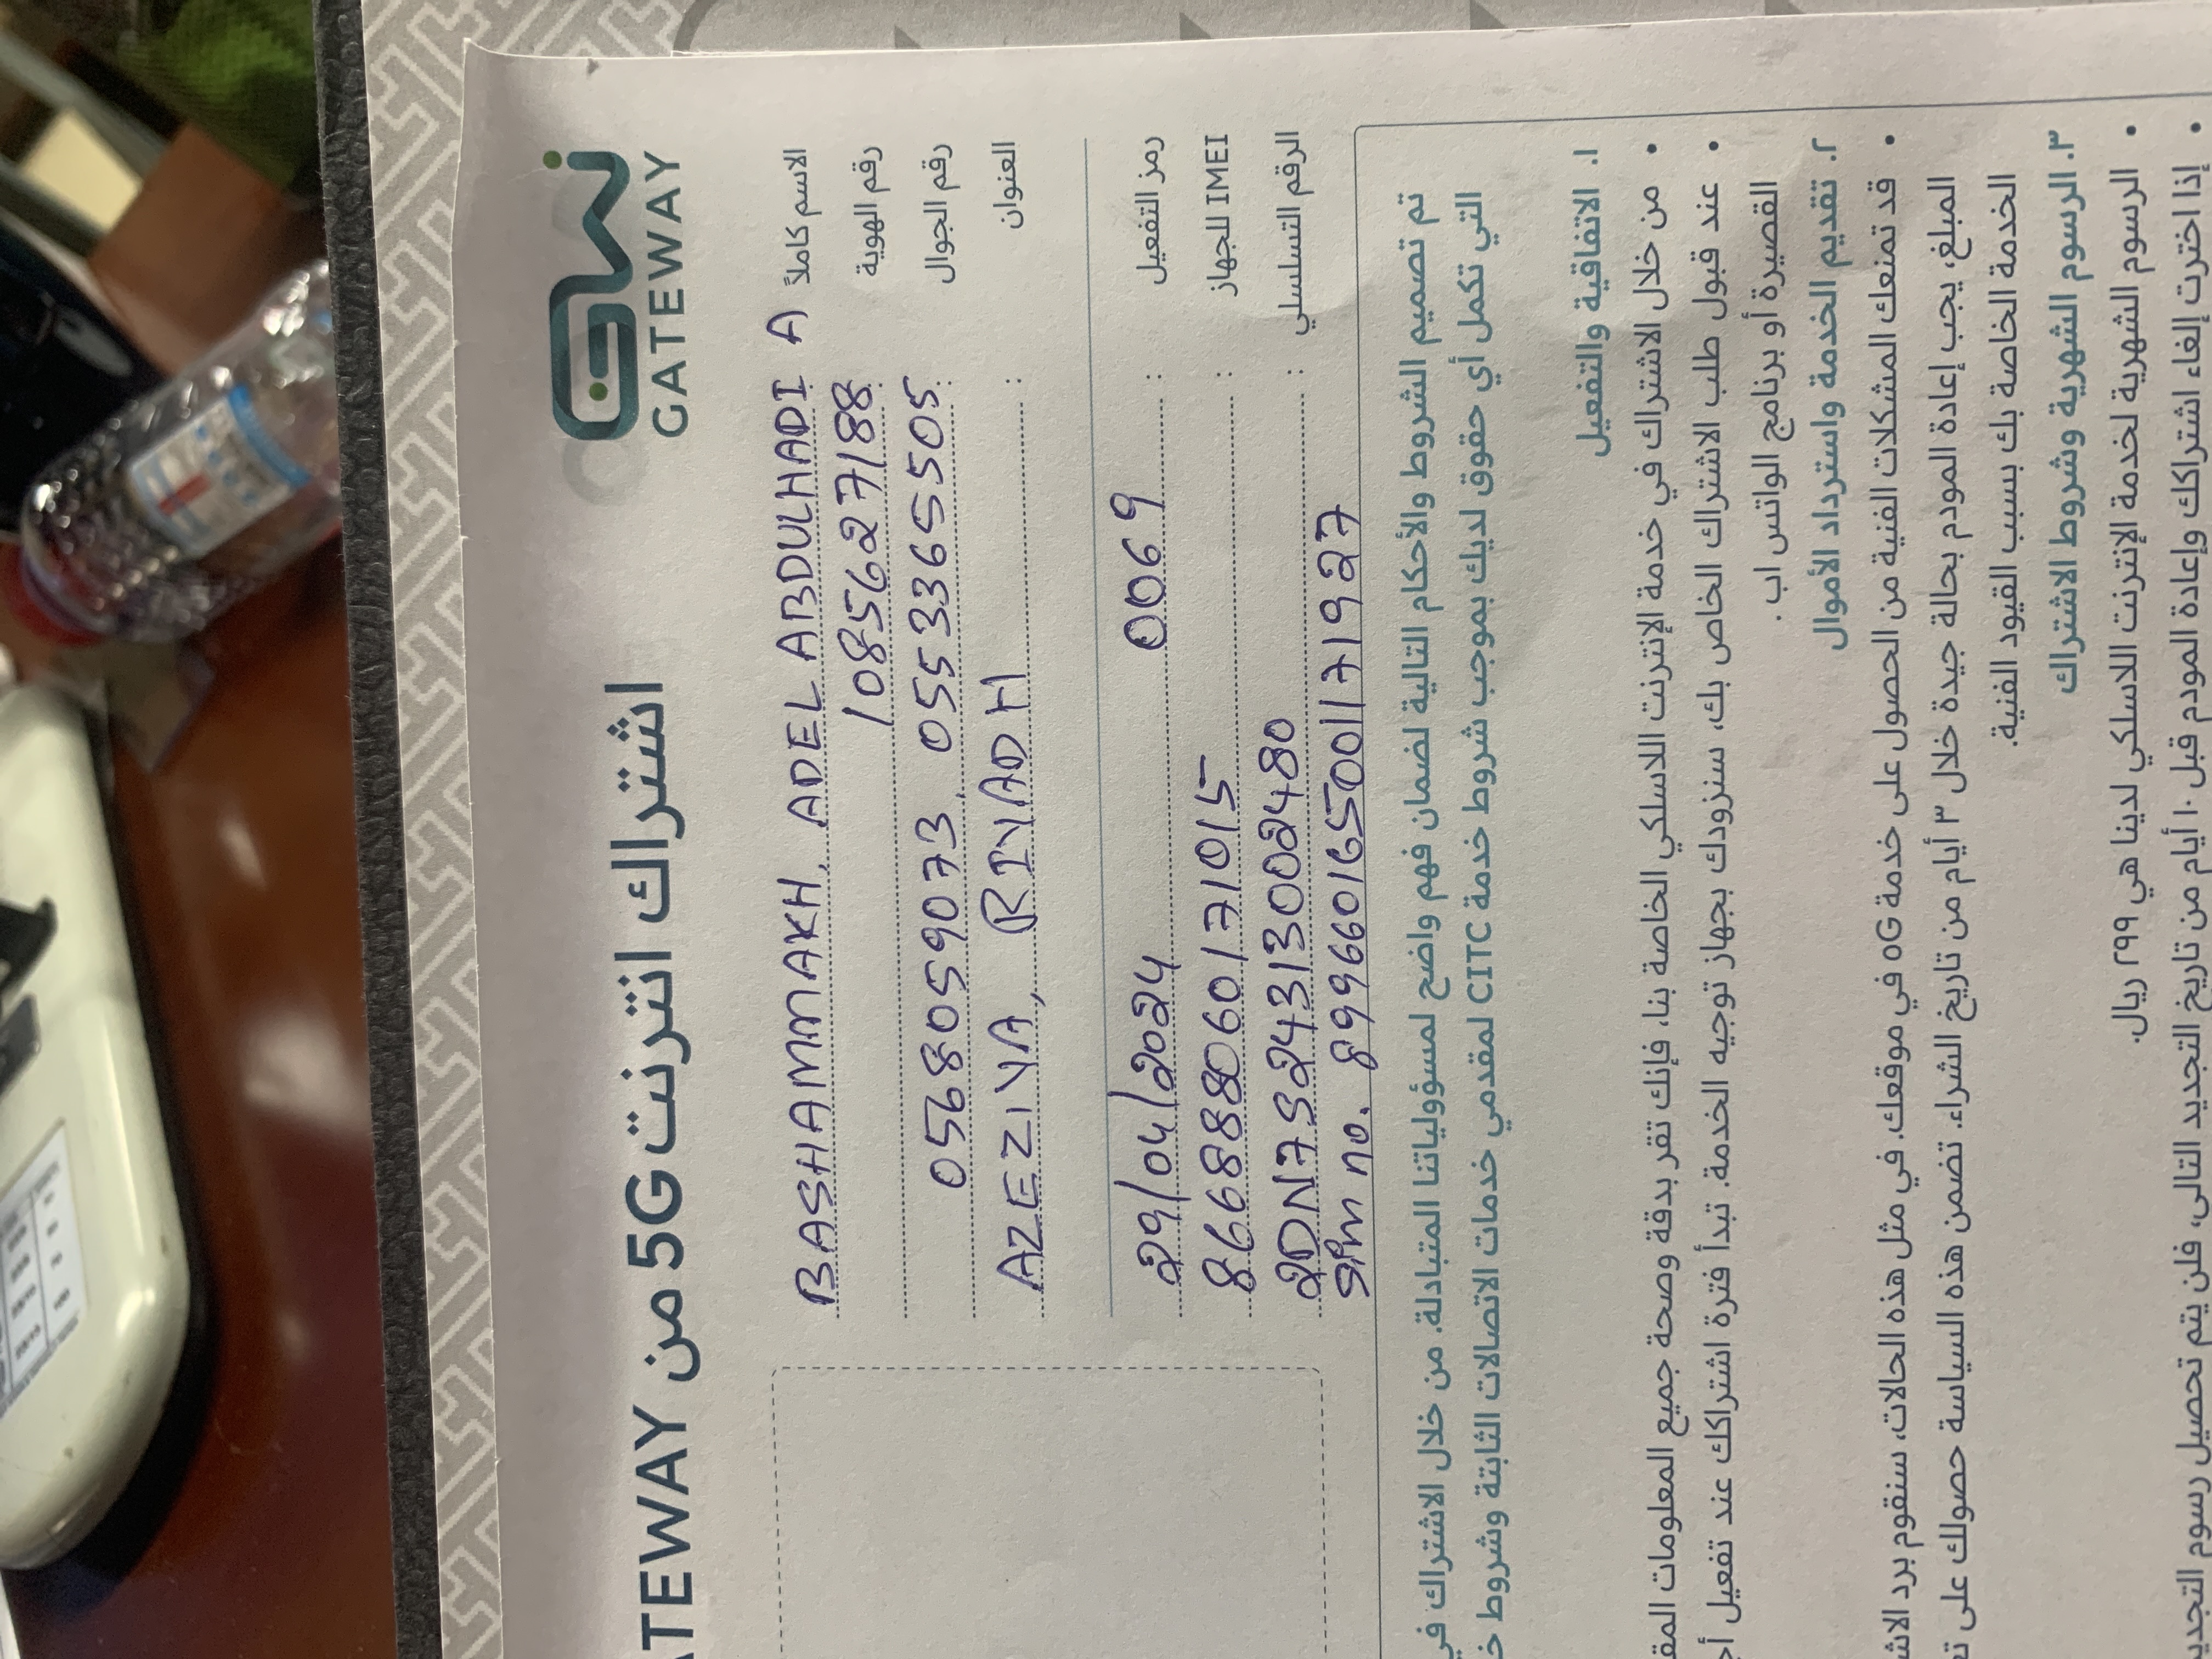 GATEWAY
اشتراك انترنت 5G من GATEWAY
الاسم كاملاً BASHAMMAKH, ADEL ABDULHADI A
رقم الهوية : 1085627188
رقم الجوال : 0568059073, 0553365505
العنوان : AZEZIYA, RIYADH
رمز التفعيل : 29/04/2024 0069
IMEI للجهاز : 866888060171015
الرقم التسلسلي : 2DN7S24313002480
SIM no. 8996601650011719 27
تم تصميم الشروط والأحكام التالية لضمان فهم واضح لمسؤولياتنا المتبادلة. من خلال الاشتراك في
التي تكمل أي حقوق لديك بموجب شروط خدمة CITC لمقدمي خدمات الاتصالات الثابتة وشروط
١. الاتفاقية والتفعيل
• من خلال الاشتراك في خدمة الإنترنت اللاسلكي الخاصة بنا، فإنك تقر بدقة وصحة جميع المعلومات
• عند قبول طلب الاشتراك الخاص بك، سنزودك بجهاز توجيه الخدمة. تبدأ فترة اشتراكك عند تفعيل
القصيرة أو برنامج الواتس اب .
٢. تقديم الخدمة واسترداد الأموال
• قد تمنعك المشكلات الفنية من الحصول على خدمة 5G في موقعك. في مثل هذه الحالات، سنقوم برد
المبلغ، يجب إعادة المودم بحالة جيدة خلال ٣ أيام من تاريخ الشراء. تضمن هذه السياسة حصولك على
الخدمة الخاصة بك بسبب القيود الفنية.
٣. الرسوم الشهرية وشروط الاشتراك
• الرسوم الشهرية لخدمة الإنترنت اللاسلكي لدينا هي ٢٩٩ ريال.
• إذا اخترت إلغاء اشتراكك وإعادة المودم قبل ١٠ أيام من تاريخ التجديد التالي، فلن يتم تحصيل رسوم التجديد